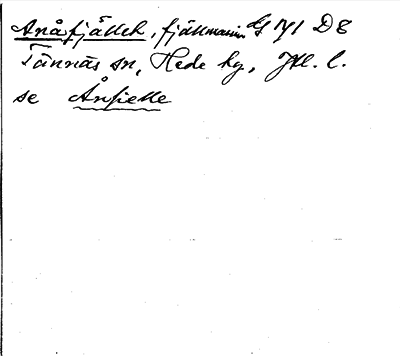 Anåfjället, fjällmassiv G 141 D 8
Tännäs sn, Hede hg, Jtl. l.
se Ånfielle